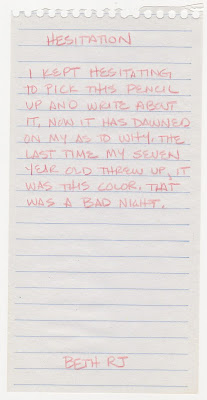 HESITATION
I KEPT HESITATING
TO PICK THIS PENCIL
UP AND WRITE ABOUT
IT. NOW IT HAS DAWNED
ON MY AS TO WHY. THE
LAST TIME MY SEVEN
YEAR OLD THREW UP, IT
WAS THIS COLOR. THAT
WAS A BAD NIGHT.
BETH RJ